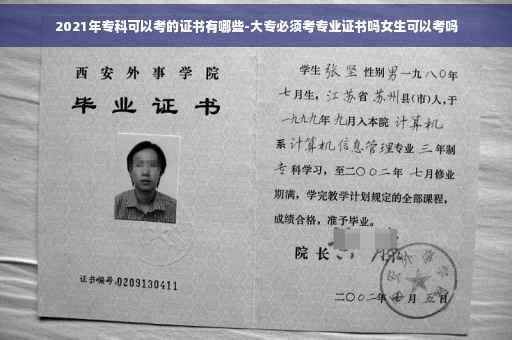 2021年专科可以考的证书有哪些-大专必须考专业证书吗女生可以考吗
西安外事学院
毕业证书
证书编号:0209130411
学生 张坚 性别男一九八〇年
七月生，江苏省苏州县(市)人,于
一九九九年九月入本院 计算机
系 计算机信息管理专业 三 年制
专科学习，至二〇〇二年 七月修业
期满，学完教学计划规定的全部课程，
成绩合格，准予毕业。
院 长
二〇〇二年 月 五 日